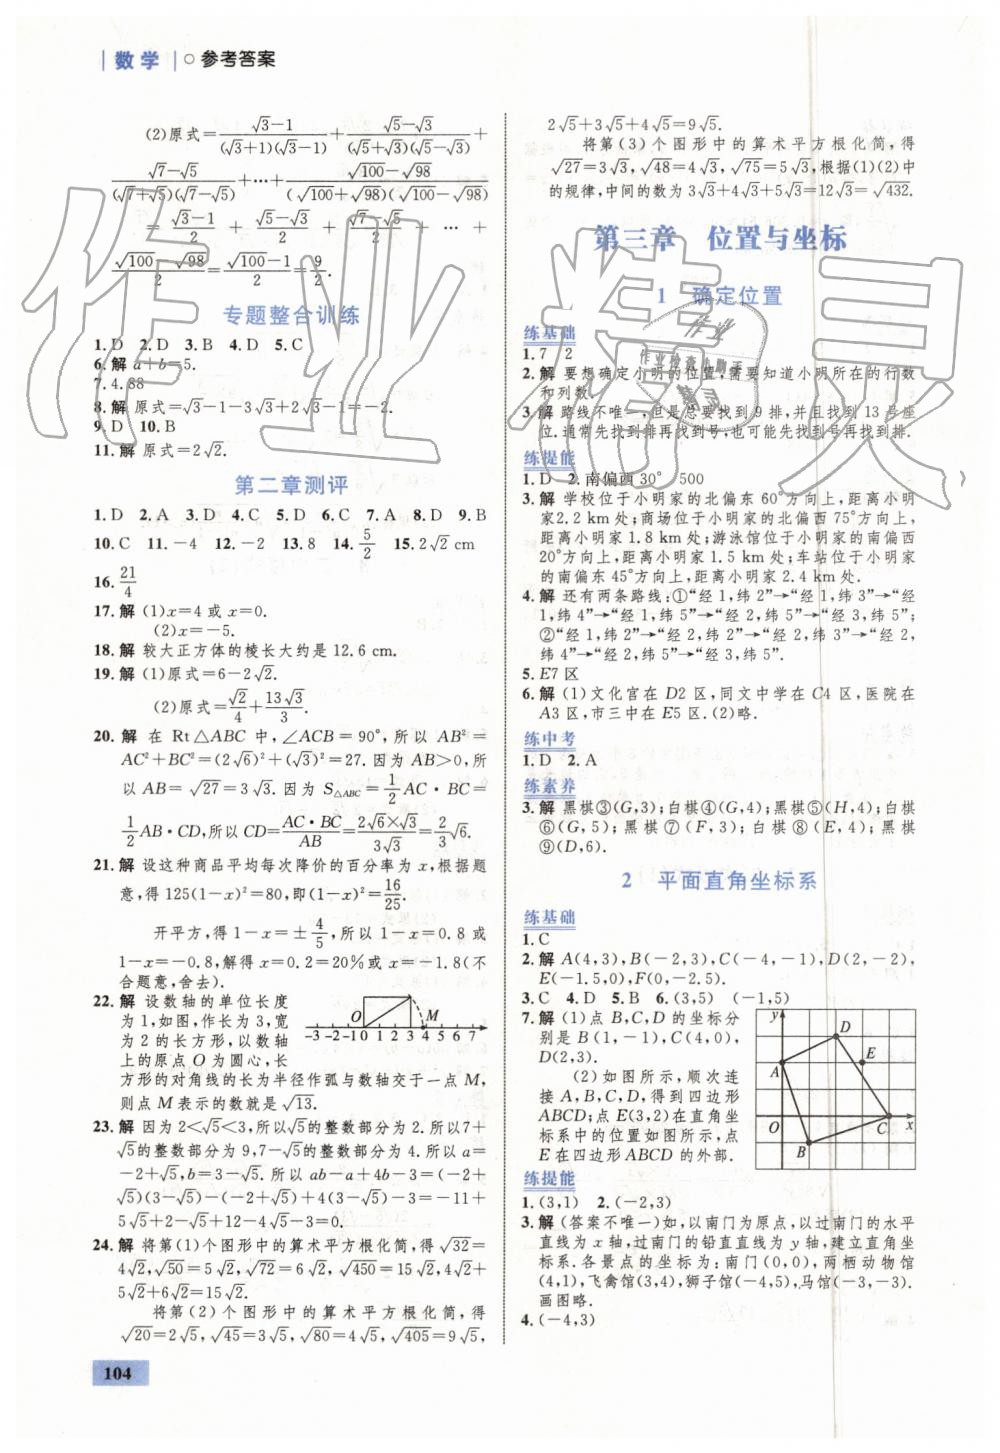 数学 ○ 参考答案
(2)原式=(√3-1)/((√3+1)(√3-1))+(√5-√3)/((√5+√3)(√5-√3))+
(√7-√5)/((√7+√5)(√7-√5))+…+(√100-√98)/((√100+√98)(√100-√98))
=(√3-1)/2+(√5-√3)/2+(√7-√5)/2+…+
(√100-√98)/2=(√100-1)/2=9/2.
专题整合训练
1.D 2.D 3.B 4.D 5.C
6.解 a+b=5.
7.4.88
8.解 原式=√3-1-3√3+2√3-1=-2.
9.D 10.B
11.解 原式=2√2.
第二章测评
1.D 2.A 3.D 4.C 5.D 6.C 7.A 8.D 9.B
10.C 11.-4 12.-2 13.8 14.5/2 15.2√2 cm
16.21/4
17.解 (1)x=4或x=0.
(2)x=-5.
18.解 较大正方体的棱长大约是12.6 cm.
19.解 (1)原式=6-2√2.
(2)原式=√2/4+13√3/3.
20.解 在Rt△ABC中,∠ACB=90°,所以AB²=
AC²+BC²=(2√6)²+(√3)²=27.因为AB>0,所
以AB=√27=3√3.因为S△ABC=1/2AC·BC=
1/2AB·CD,所以CD=AC·BC/AB=2√6×√3/3√3=2/3√6.
21.解 设这种商品平均每次降价的百分率为x,根据题
意,得125(1-x)²=80,即(1-x)²=16/25.
开平方,得1-x=±4/5,所以1-x=0.8或
1-x=-0.8,解得x=0.2=20%或x=-1.8(不
合题意,舍去).
22.解 设数轴的单位长度
为1,如图,作长为3,宽
为2的长方形,以数轴
上的原点O为圆心,长
方形的对角线的长为半径作弧与数轴交于一点M,
则点M表示的数就是√13.
O M
-3 -2 -1 0 1 2 3 4 5 6 7
23.解 因为2<√5<3,所以√5的整数部分为2.所以7+
√5的整数部分为9,7-√5的整数部分为4.所以a=
-2+√5,b=3-√5.所以ab-a+4b-3=(-2+
√5)(3-√5)-(-2+√5)+4(3-√5)-3=-11+
5√5+2-√5+12-4√5-3=0.
24.解 将第(1)个图形中的算术平方根化简,得√32=
4√2,√50=5√2,√72=6√2,√450=15√2,4√2+
5√2+6√2=15√2.
将第(2)个图形中的算术平方根化简,得
√20=2√5,√45=3√5,√80=4√5,√405=9√5,
104
2√5+3√5+4√5=9√5.
将第(3)个图形中的算术平方根化简,得
√27=3√3,√48=4√3,√75=5√3,根据(1)(2)中
的规律,中间的数为3√3+4√3+5√3=12√3=√432.
第三章 位置与坐标
1 确定位置
练基础
1.7 2
2.解 要想确定小明的位置,需要知道小明所在的行数
和列数.
3.解 路线不唯一,但是总要找到9排,并且找到13号座
位.通常先找到排再找到号,也可能先找到号再找到排.
练提能
1.D 2.南偏西30° 500
3.解 学校位于小明家的北偏东60°方向上,距离小明
家2.2 km处;商场位于小明家的北偏西75°方向上,
距离小明家1.8 km处;游泳馆位于小明家的南偏西
20°方向上,距离小明家1.5 km处;车站位于小明家
的南偏东45°方向上,距离小明家2.4 km处.
4.解 还有两条路线:①“经1,纬2”→“经1,纬3”→“经
1,纬4”→“经1,纬5”→“经2,纬5”→“经3,纬5”;
②“经1,纬2”→“经2,纬2”→“经2,纬3”→“经2,
纬4”→“经2,纬5”→“经3,纬5”.
5.E7区
6.解 (1)文化宫在D2区,同文中学在C4区,医院在
A3区,市三中在E5区.(2)略.
练中考
1.D 2.A
练素养
3.解 黑棋③(G,3);白棋④(G,4);黑棋⑤(H,4);白棋
⑥(G,5);黑棋⑦(F,3);白棋⑧(E,4);黑棋
⑨(D,6).
2 平面直角坐标系
练基础
1.C
2.解 A(4,3),B(-2,3),C(-4,-1),D(2,-2),
E(-1.5,0),F(0,-2.5).
3.C 4.D 5.B 6.(3,5) (-1,5)
7.解 (1)点B,C,D的坐标分
别是B(1,-1),C(4,0),
D(2,3).
(2)如图所示,顺次连
接A,B,C,D,得到四边形
ABCD;点E(3,2)在直角坐
标系中的位置如图所示,点
E在四边形ABCD的外部.
y
D
E
A
O
C
x
B
练提能
1.(3,1) 2.(-2,3)
3.解 (答案不唯一)如,以南门为原点,以过南门的水平
直线为x轴,过南门的铅直直线为y轴,建立直角坐
标系.各景点的坐标为:南门(0,0),两栖动物馆
(4,1),飞禽馆(3,4),狮子馆(-4,5),马馆(-3,-3).
画图略.
4.(-4,3)
作业精灵
作业
作业检查小助手
精灵